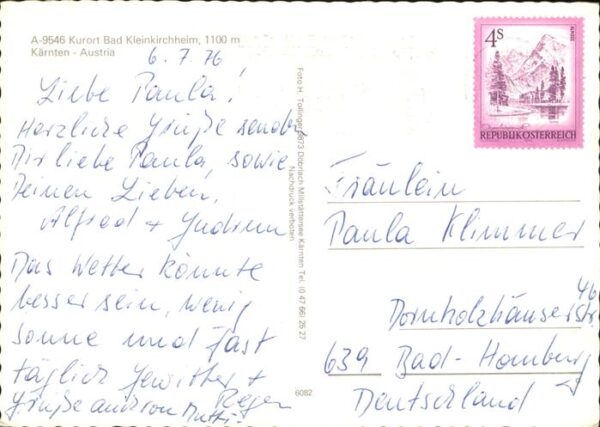 A-9546 Kurort Bad Kleinkirchheim, 1100 m
Kärnten - Austria
6. 7. 76
Liebe Paula!
Herzliche Grüße senden
Dir liebe Paula, sowie
Deinen Lieben,
Alfred + Gudrun
Das Wetter könnte
besser sein, wenig
Sonne und fast
täglich Gewitter +
Regen
Grüße auch von Mutti
Foto H. Tollinger, 9873 Döbriach Millstättersee Kärnten Tel. (0 47 66) 26 27
Nachdruck verboten
6082
4S
REPUBLIK ÖSTERREICH
Fräulein
Paula Klimmer
Dornholzhäuserstr.
46
639 Bad-Homburg
Deutschland